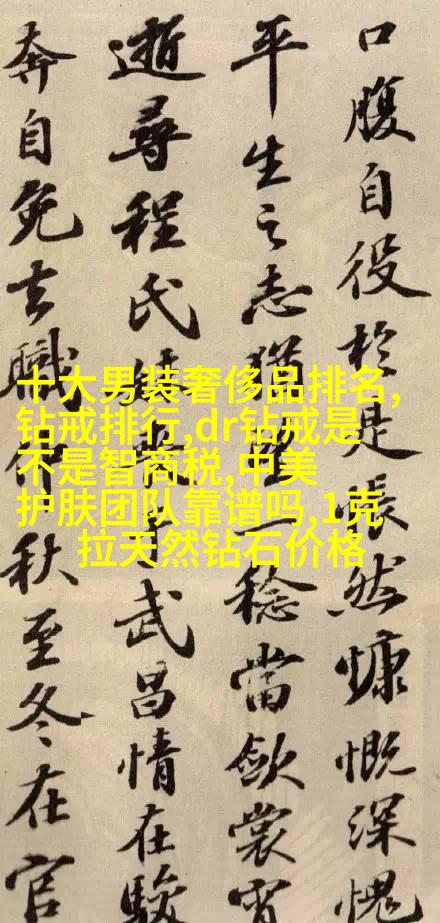 口腹自役於是悵然慷慨深愧
平生之志猶一稔當斂裳宵
逝尋程氏武昌情在駿
奔自免去職仲秋至冬在官
十大男装奢侈品排名,
钻戒排行,dr钻戒是
不是智商税,中美
护肤团队靠谱吗,1克
拉天然钻石价格